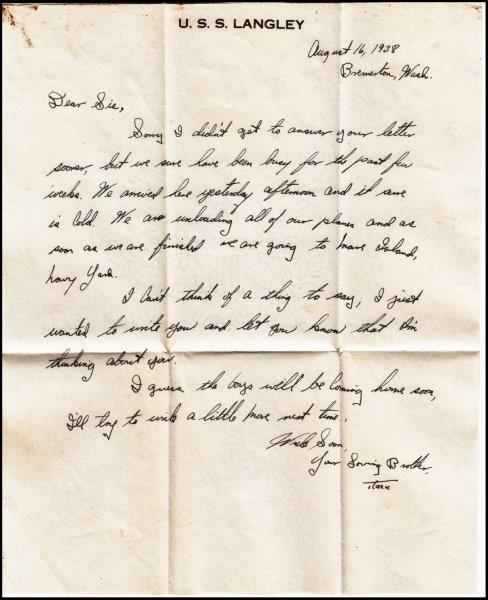 U. S. S. LANGLEY
August 16, 1938
Bremerton, Wash.
Dear Sis,
Sorry I didn't get to answer your letter
sooner, but we sure have been busy for the past few
weeks. We arrived here yesterday afternoon and it sure
is cold. We are unloading all of our planes and as
soon as we are finished we are going to Mare Island,
Navy Yard.
I can't think of a thing to say, I just
wanted to write you and let you know that I'm
thinking about you.
I guess the boys will be coming home soon,
I'll try to write a little more next time.
Write Soon,
Your Loving Brother,